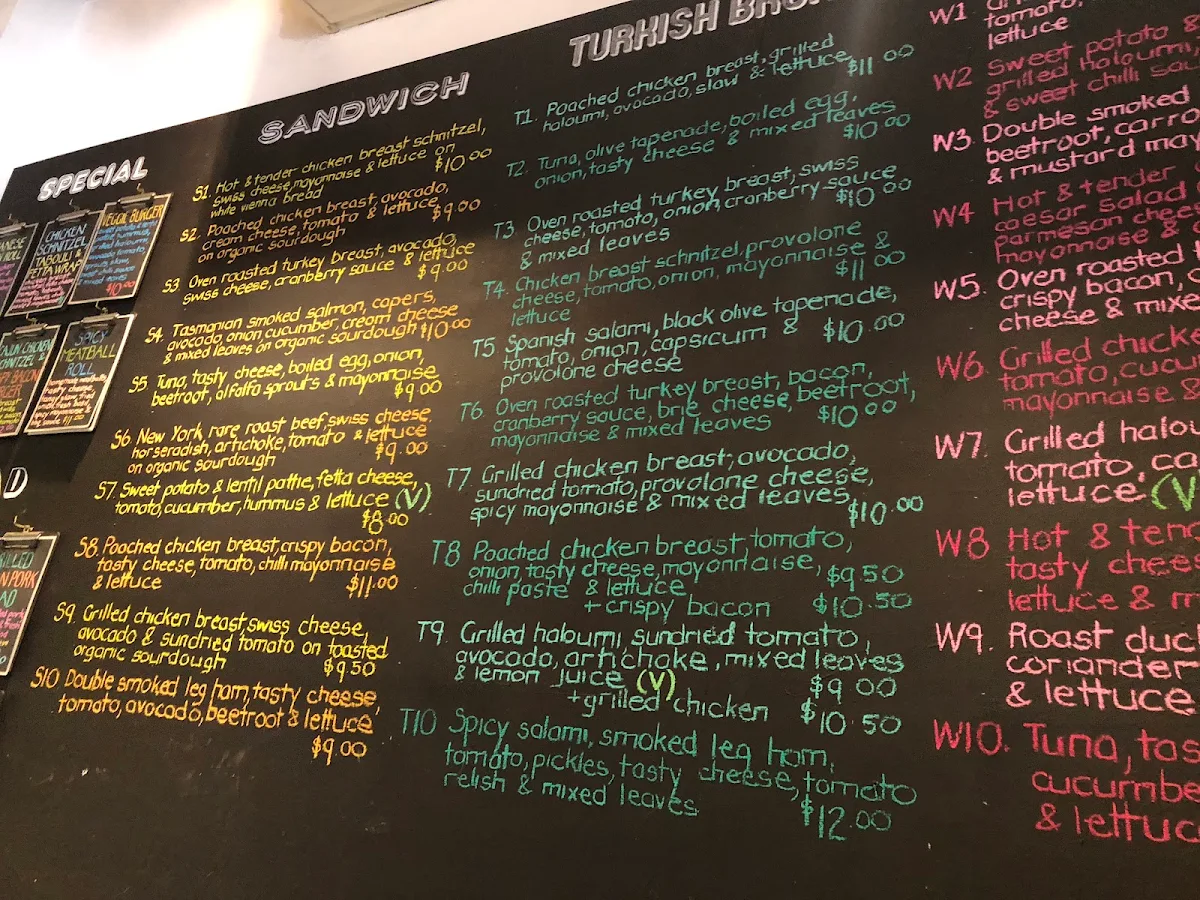 SPECIAL
CHICKEN
SCHNITZEL
TABOULI &
FETTA WRAP
VEGGIE BURGER
SPICY
MEATBALL
ROLL
SANDWICH
S1. Hot & tender chicken breast schnitzel,
swiss cheese, mayonnaise & lettuce on
white vienna bread $10.00
S2. Poached chicken breast, avocado,
cream cheese, tomato & lettuce
on organic sourdough $9.00
S3. Oven roasted turkey breast, avocado,
swiss cheese, cranberry sauce & lettuce
$9.00
S4. Tasmanian smoked salmon, capers,
avocado, onion, cucumber, cream cheese
& mixed leaves on organic sourdough $10.00
S5 Tuna, tasty cheese, boiled egg, onion,
beetroot, alfalfa sprouts & mayonnaise
$9.00
S6 New York rare roast beef, swiss cheese
horseradish, artichoke, tomato & lettuce
on organic sourdough $9.00
S7. Sweet potato & lentil pattie, fetta cheese,
tomato, cucumber, hummus & lettuce (V)
$8.00
S8. Poached chicken breast, crispy bacon,
tasty cheese, tomato, chilli mayonnaise
& lettuce $11.00
S9. Grilled chicken breast, swiss cheese,
avocado & sundried tomato on toasted
organic sourdough $9.50
S10 Double smoked leg ham, tasty cheese,
tomato, avocado, beetroot & lettuce
$9.00
TURKISH
T1. Poached chicken breast, grilled
haloumi, avocado, slaw & lettuce $11.00
T2. Tuna, olive tapenade, boiled egg,
onion, tasty cheese & mixed leaves
$10.00
T3. Oven roasted turkey breast, swiss
cheese, tomato, onion, cranberry sauce
& mixed leaves $10.00
T4. Chicken breast schnitzel, provolone
cheese, tomato, onion, mayonnaise &
lettuce $11.00
T5 Spanish salami, black olive tapenade,
tomato, onion, capsicum &
provolone cheese $10.00
T6. Oven roasted turkey breast, bacon,
cranberry sauce, brie cheese, beetroot,
mayonnaise & mixed leaves $10.00
T7 Grilled chicken breast, avocado,
sundried tomato, provolone cheese,
spicy mayonnaise & mixed leaves $10.00
T8 Poached chicken breast, tomato,
onion, tasty cheese, mayonnaise,
chilli paste & lettuce $9.50
+ crispy bacon $10.50
T9. Grilled haloumi, sundried tomato,
avocado, artichoke, mixed leaves
& lemon juice (V) $9.00
+ grilled chicken $10.50
T10 Spicy salami, smoked leg ham,
tomato, pickles, tasty cheese, tomato
relish & mixed leaves $12.00
W1
tomato,
lettuce
W2 Sweet potato &
grilled haloumi,
& sweet chilli
W3. Double smoked
beetroot,
& mustard
W4 Hot & tender
caesar salad
parmesan
mayonnaise &
W5. Oven roasted
crispy bacon,
cheese &
W6. Grilled
tomato,
mayonnaise &
W7. Grilled
tomato,
lettuce (V
W8 Hot &
tasty
lettuce &
W9. Roast
coriander
& lettuce
W10. Tuna,
&